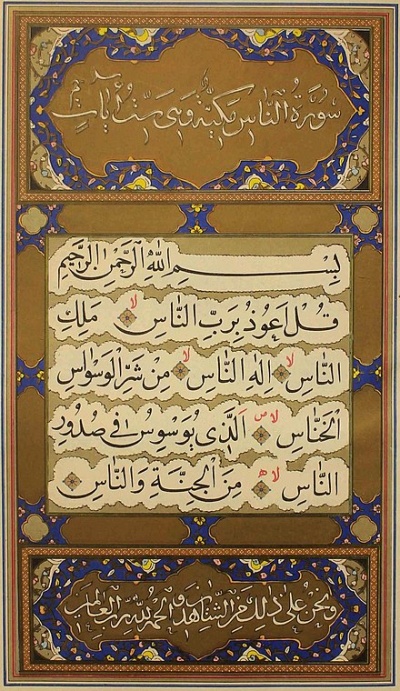 سُورَةُ النَّاسِ مَكِّيَّةٌ وَهِيَ سِتُّ اٰيَاتٍ
بِسْمِ اللّٰهِ الرَّحْمٰنِ الرَّحِيمِ
قُلْ اَعُوذُ بِرَبِّ النَّاسِ لا مَلِكِ
النَّاسِ لا اِلٰهِ النَّاسِ لا مِنْ شَرِّ الْوَسْوَاسِ
الْخَنَّاسِ لا ص اَلَّذِي يُوَسْوِسُ فِي صُدُورِ
النَّاسِ لا ه مِنَ الْجِنَّةِ وَالنَّاسِ
وَنَحْنُ عَلَى ذٰلِكَ مِنَ الشَّاهِدِينَ وَالْحَمْدُ لِلّٰهِ رَبِّ الْعَالَمِينَ